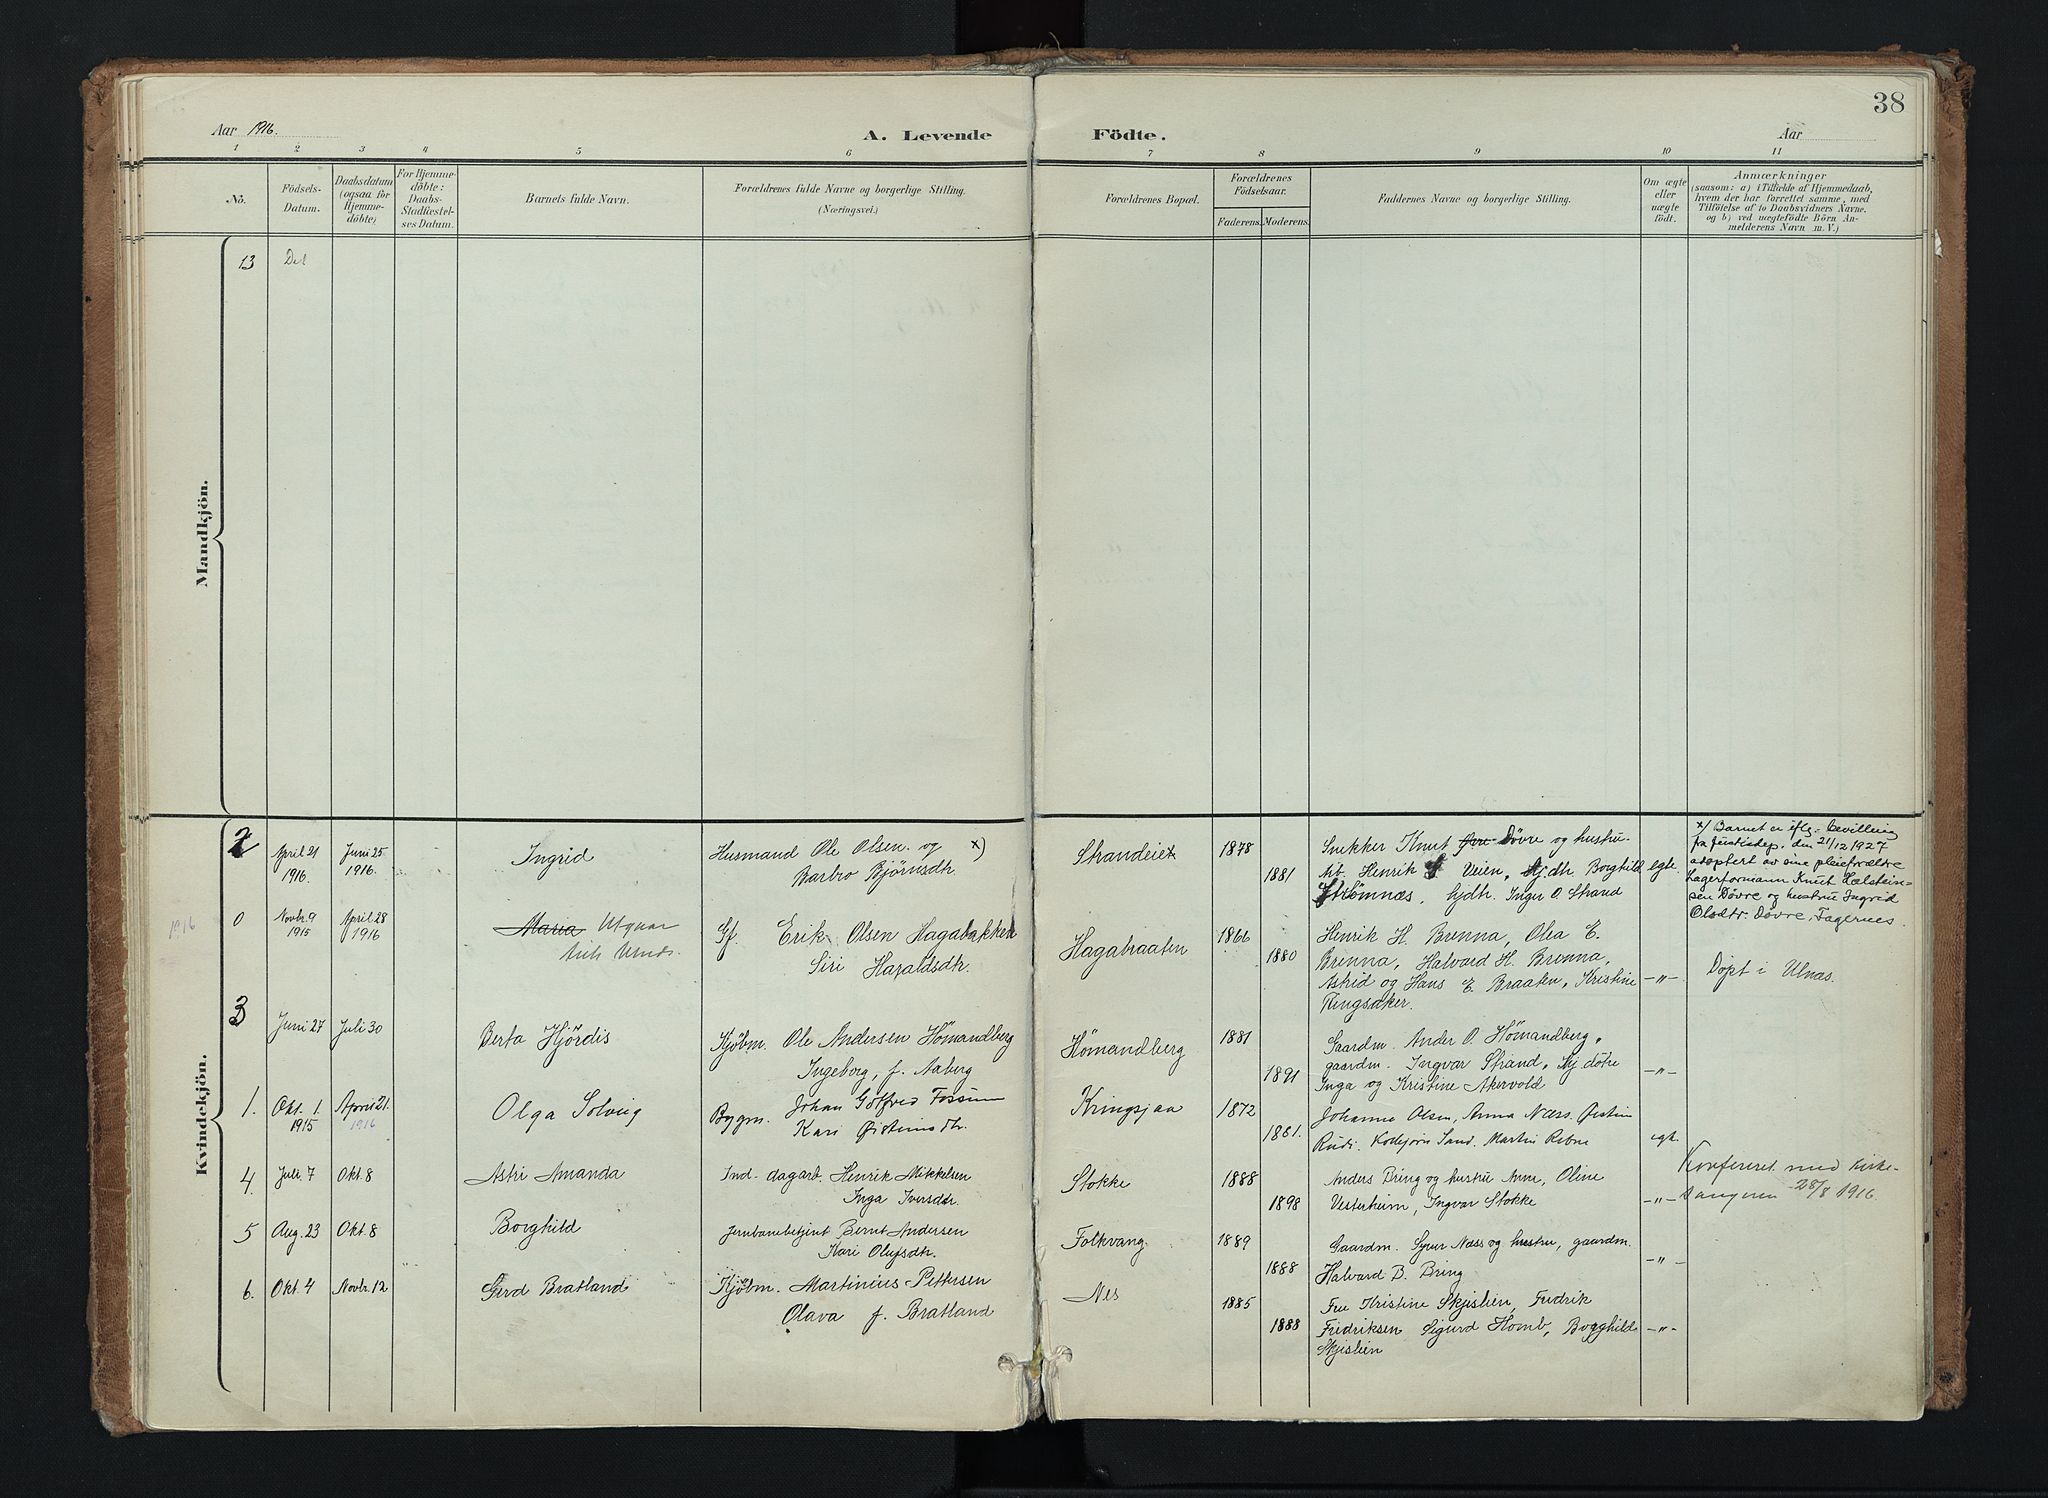 38
Aar 1916.
A. Levende
Födte.
Aar
1 2 3 4 5 6 7 8 9 10 11
No.
Födsels-
Datum.
Daabsdatum
(ogsaa for
Hjemme-
döbte)
For Hjemme-
döbte:
Daabs-
Stadfæstel-
ses Datum.
Barnets fulde Navn.
Forældrenes fulde Navne og borgerlige Stilling.
(Næringsvei.)
Forældrenes Bopæl.
Forældrenes
Födselsaar.
Faderens. Moderens.
Faddernes Navne og borgerlige Stilling.
Om ægte
eller
uægte
födt.
Anmærkninger
(saasom: a) i Tilfælde af Hjemmedaab,
hvem der har forrettet samme, med
Tilföielse af to Daabsvidners Navne.
og b) ved uægtefödte Börn An-
melderens Navn m. V.)
Mandkjön.
13
Kvindekjön.
2
April 21
1916.
Juni 25
1916.
Ingrid
Husmand Ole Olsen. og x)
Barbro Bjørnsdtr.
Strandeiet
1878
1881
Snekker Knut Døvre og hustru.
Arb. Henrik Veien, Hjdtr. Borghild
Strømnæs, hjdtr. Inger O. Strand
egte.
x/ Barnet er iflg. bevilling
fra justisdep. den 21/12 1927
adoptert av sine pleieforældre
Lagerformann Knut Halstein-
sen Døvre og hustru Ingrid
Olsdtr. Døvre, Fagernes.
1916
0
Novbr. 9
1915
April 28
1916
Maria Utgaar
Gf. Erik Olsen Hagabakken
Siri Haraldsdtr.
Hagabraaten
1866
1880
Henrik H. Brenna, Olea E.
Brenna, Halvard H. Brenna,
Astrid og Hans E. Braaten, Kristine
Ringsaker.
-"-
Døpt i Ulnæs.
3
Juni 27
Juli 30
Berta Hjördis
Kjøbm. Ole Andersen Hömandberg
Ingeborg, f. Aaberg
Hömandberg
1881
1891
Gaardm. Ander O. Hömandberg,
gaardm. Ingvar Strand, Hj døtre
Inga og Kristine Akervold
-"-
1.
Okt. 1.
1915
April 21.
1916
Olga Solveig
Bygm. Johan Gotfred Fossum
Kari Østensdtr.
Kringsjaa
1872
1881.
Johanna Olsen, Anna Næss. Østein
Rudi. Sand. Martin Rebne
egt.
4.
Juli 7
Okt. 8
Astri Amanda
Ind. dagarb. Henrik Mikkelsen
Inga Iversdtr.
Stokke
1888
1898
Anders Bring og hustru Anne, Oline
Vesterheim, Ingvar Stokke
-"-
Konfereret med kirke-
sangeren 28/8 1916.
5
Aug. 23
Okt. 8
Borghild
Jernbanebetjent Bernt Andersen
Kari Olufsdtr.
Folkvang
1889
1888
Gaardm. Syver Næss og hustru, gaardm.
Halvard B. Bring
-"-
6.
Okt. 4
Novbr. 12
Gerd Bratland
Kjøbm. Martinius Pettersen
Olava f. Bratland
Nes
1885
1888
Fru Kristine Skjislien, Fredrik
Fredriksen Sigurd Homb, Borghild
Skjislien
-"-